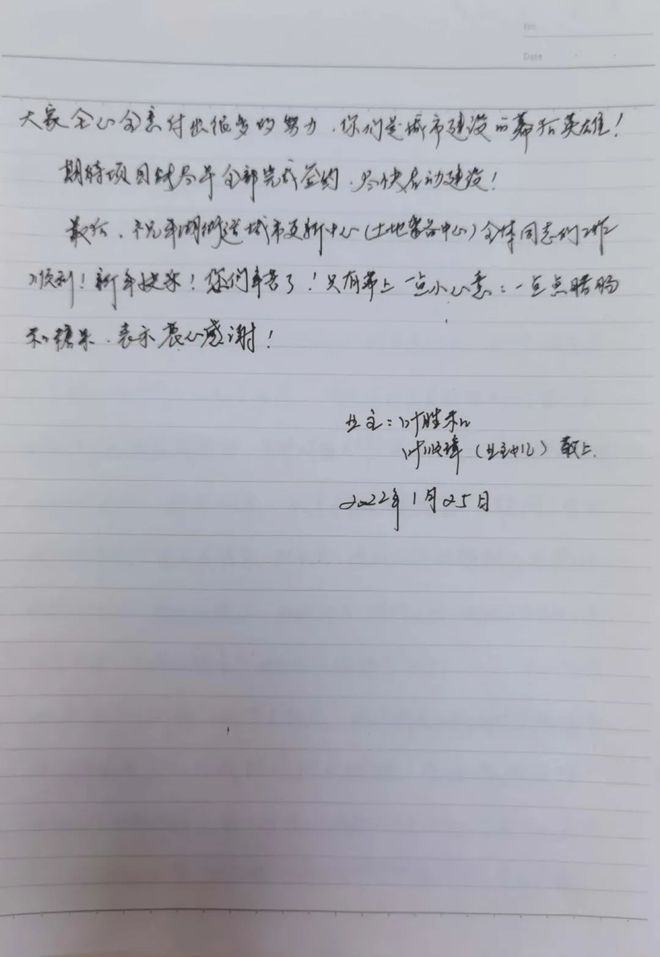 No.
Date
大家全心全意付出很多的努力,你们是城市建设的幕后英雄!
期待项目能尽早全部完成签约,尽快启动建设!
最后,祝平湖街道城市更新中心(土地整备中心)全体同志们工作
顺利!新年快乐!您们辛苦了!只有带上一点小心意:一点点腊肠
和糖果,表示衷心感谢!
业主:叶胜
叶 (业主 ) 敬上.
2022年1月25日